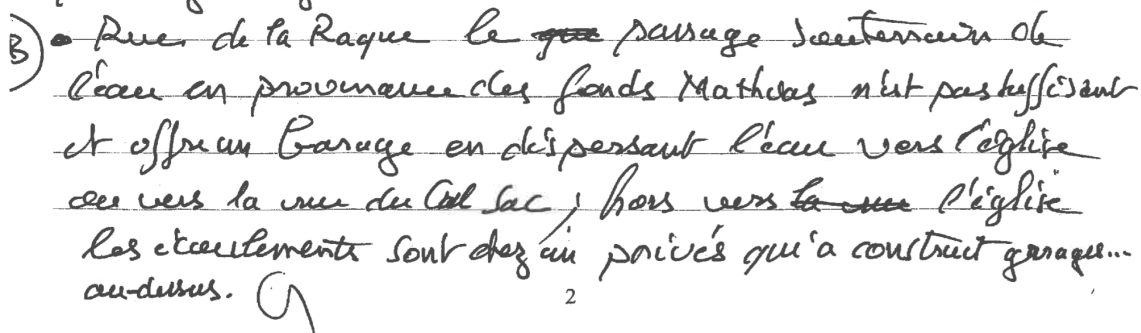 B) • Rue de la Raque le ~~que~~ passage souterrain de
l'eau en provenance des fonds Mathias n'est pas suffisant
et offre un barage en dispersant l'eau vers l'église
ou vers la rue du Cul Sac ; hors vers ~~la rue~~ l'église
les écoulements sont chez un privés qui a construit garages...
au-dessus.
2